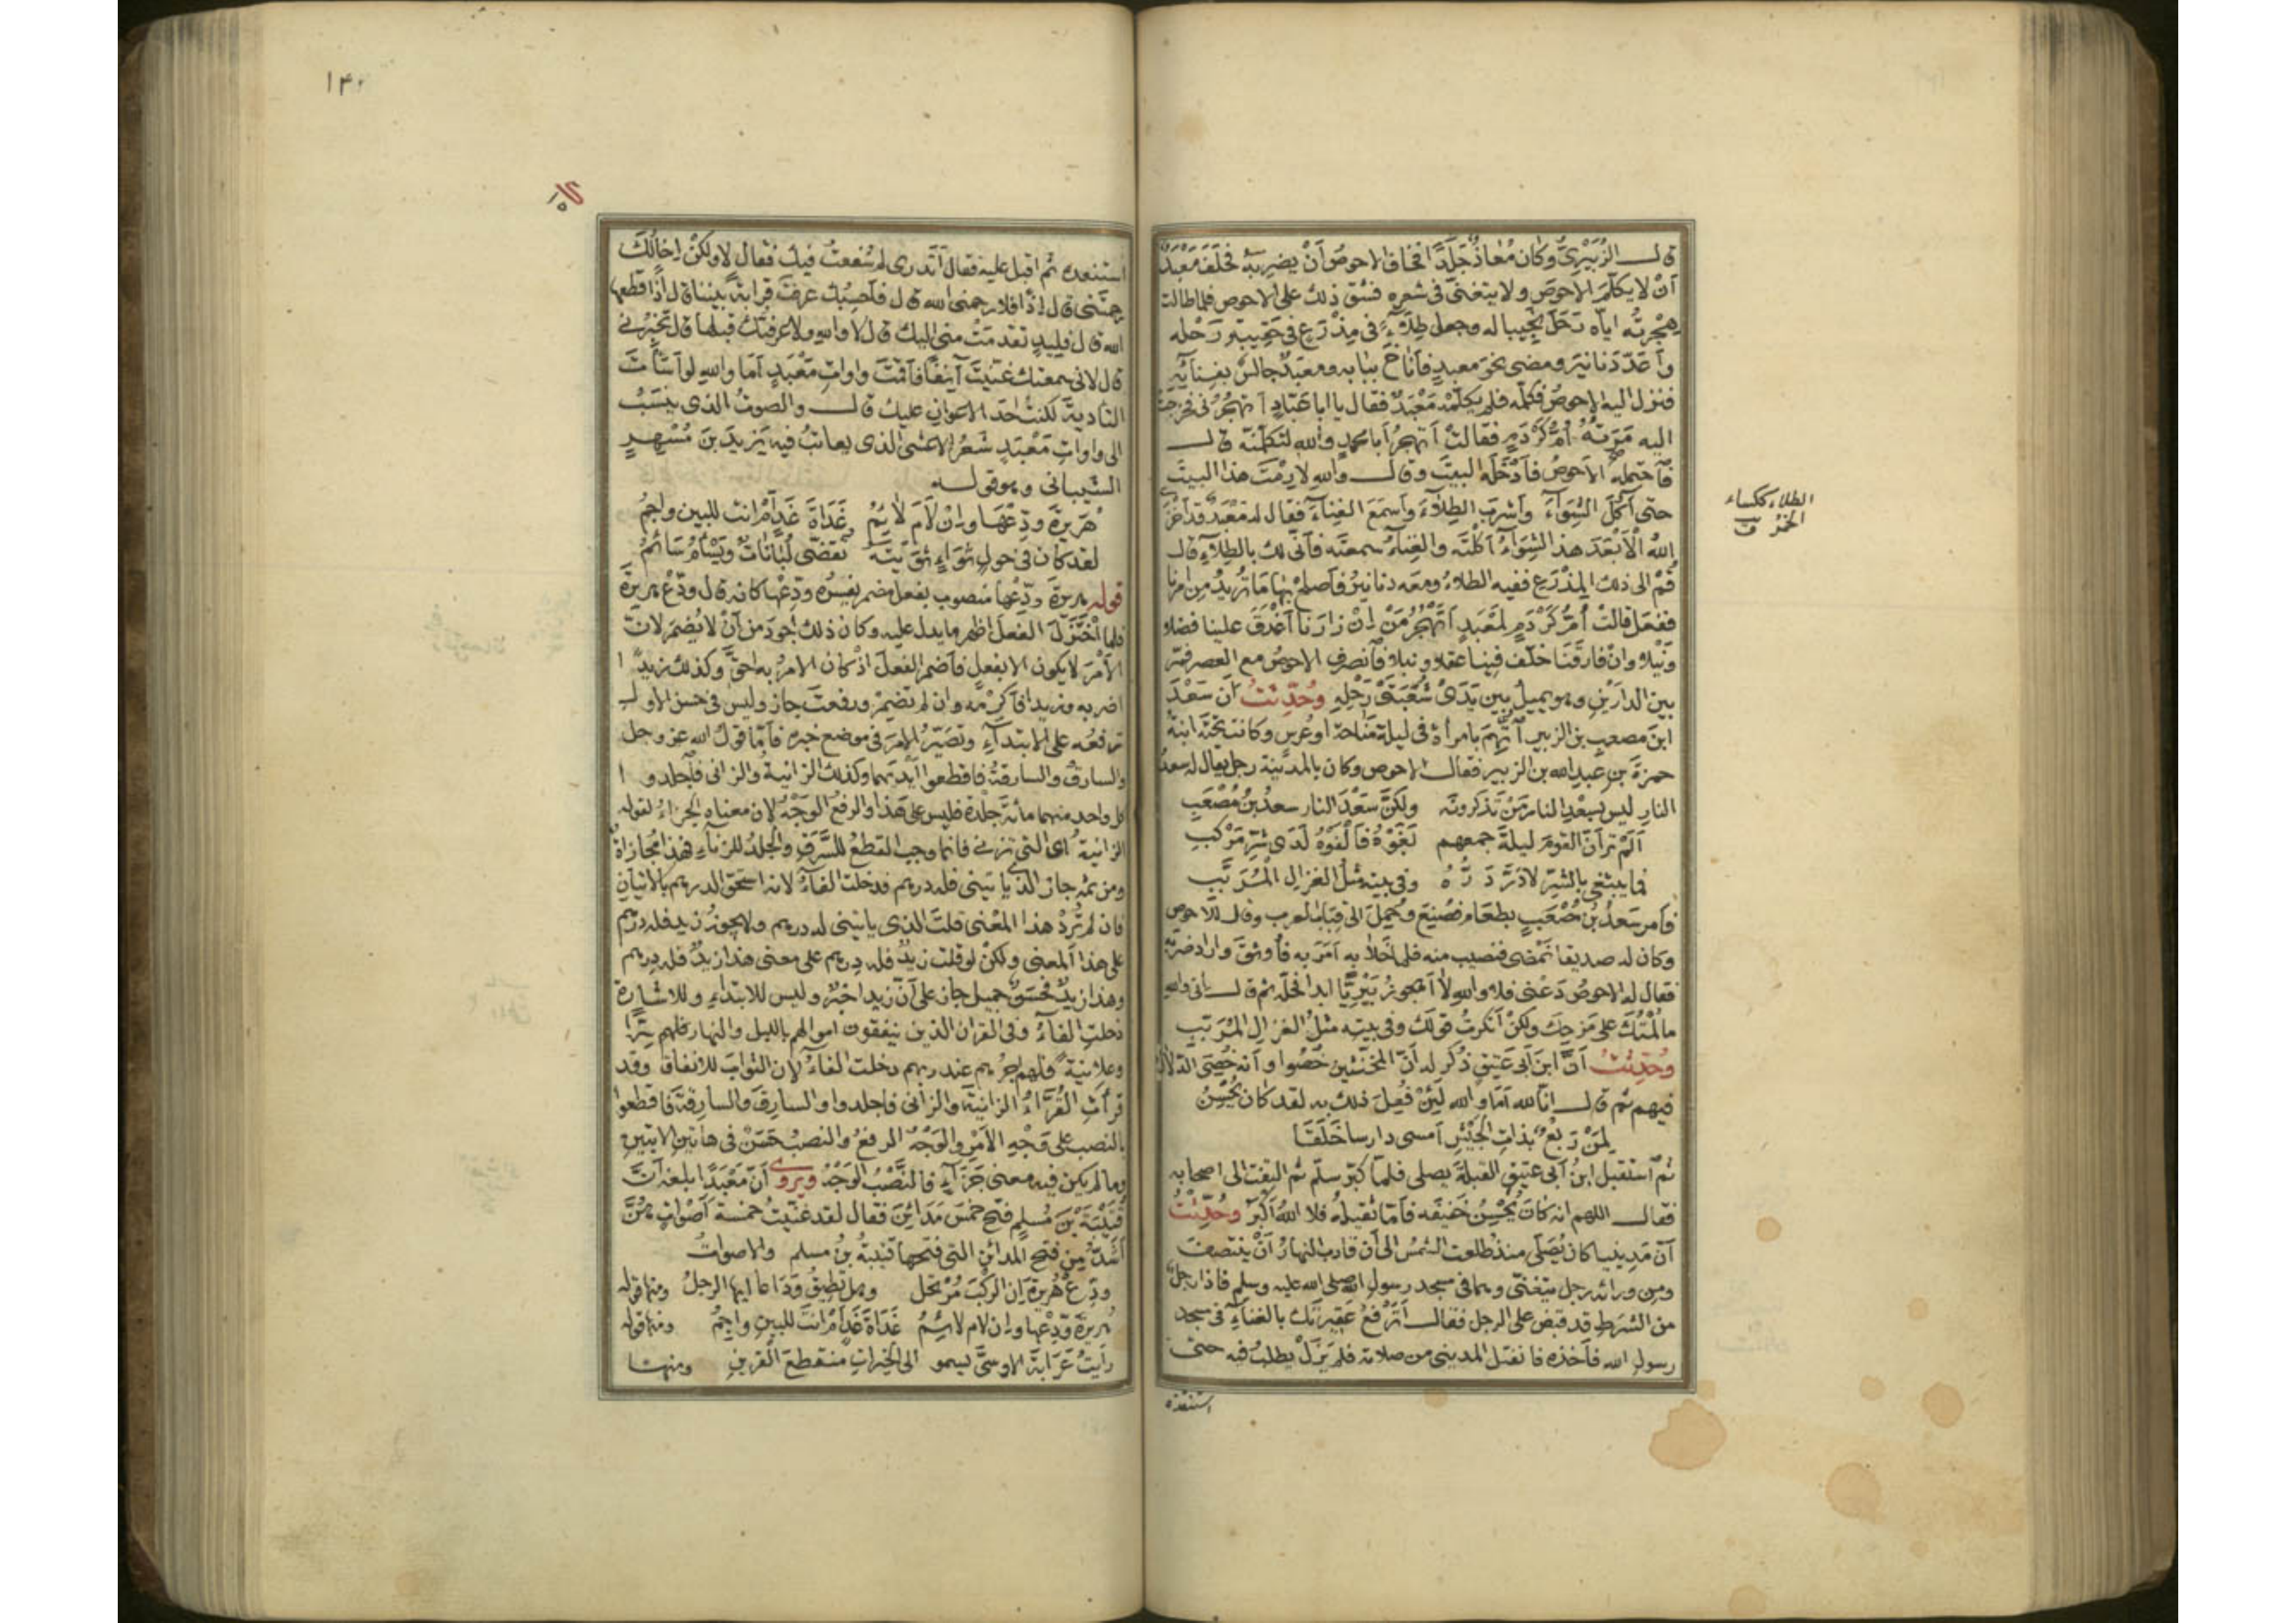 قال الزُّبَيْرِيُّ وكان مُعَاذٌ جَلْدًا فخاف الاحوصُ أنْ يضربَهُ فحَلَفَ مَعْبَدٌ
أنْ لا يكلِّمَ الاحوصَ ولا يتغنّى فى شعرِه فشقّ ذلك على الاحوص فلما طالت
هِجْرتُه اياه رَحَلَ نجيبا له وجعل طِلَاءً فى مِذْرَعٍ فى حَقِيبَةِ رَحْله
وأعَدَّ دَنانيرَ ومضى نحوَ معبدٍ فأناخ ببابه ومعبدٌ جالسٌ بفِنائِه
فنزل اليه الاحوصُ فكلَّمه فلم يكلِّمْه مَعْبَدٌ فقال يا ابا عَبّادٍ أتهجُرُنى فخرجت
اليه مَرَتُهُ أمُّ كَرْدَمٍ فقالتْ أتهجرُ أبا محمدٍ والله لتكلمنّه قال
فاحتمله الاحوصُ فأدْخَلَه البيتَ وقال واللهِ لا رِمْتُ هذا البيتَ
حتى آكُلَ الشِّوَاءَ وأشربَ الطِّلاءَ وأسمَعَ الغِناءَ فقال له مَعْبَدٌ قد أخزَى
اللهُ الأبْعَدَ هذا الشِّوَاءُ أكلتَه والغِناءُ سمعتَه فأنّى لك بالطِّلاءِ قال
قُمْ الى ذلك المِذْرَعِ ففيه الطلاءُ ومعه دنانيرُ فأصلِحْ بها ما تُريدُ من امرنا
ففعَلَ فقالتْ أمُّ كَرْدَمٍ لمَعْبَدٍ أتَهْجُرُ مَنْ إنْ زارَنا أغْدَقَ علينا فضلا
ونَيْلا وان فارقَنا خلّف فينا عقلا ونبلا فانصرف الاحوصُ مع العصر فمرّ
بين الدارَيْنِ وهو يميلُ بين يَدَىْ شُعْبَتَىْ رَحْلِهِ وحُدِّثتُ أن سَعْدَ
ابنَ مصعبِ بنِ الزبير اتُّهِمَ بامرأةٍ فى ليلةِ مَنَاحةٍ او عُرسٍ وكانت تحتَه ابنةُ
حمزةَ بنِ عبدِ الله بن الزبير فقال الاحوص وكان بالمدينة رجل يقال له سعدُ
النارِ ليس بسعْدِ النار مَنْ تذكرونَه ولكنّ سَعْدَ النار سعدُ بنُ مُصْعَبِ
ألَمْ ترَ أنّ القومَ ليلةَ جمعهم بَغَوْهُ فَألْفَوْهُ لَدَى شرِّ مَرْكَبِ
فما يبتغى بالشرّ لا دَرَّ دَرُّهُ وفى بيته مثلُ الغزالِ المُرَبَّبِ
فأمر سَعدُ بنُ مُصْعَبٍ بطعام فصُنِعَ وحُمِلَ الى قِبَابِ العرب وقال للاحوص
وكان له صديقا تَمْضى فنصيب منه فلما خَلا به أمَرَ به فأوثقَ واراد ضربَه
فقال له الاحوصُ دَعْنى فلا واللهِ لا أهجو زُبَيْرِيًّا ابدا فحَلّه ثم قال انى والله
ما لُمْتُكَ على مَزحِكَ ولكنْ أنكرتُ قولَك وفى بيتِه مثلُ الغزالِ المُرَبَّبِ
وحُدِّثتُ أنَّ ابنَ ابى عَتِيقٍ ذُكر له أنّ المخنّثين خُصُوا وأنّه خُصِىَ الدّلالُ
فيهم ثم قال انّا لله أمَا والله لَئِنْ فُعِلَ ذلك به لقد كان يُحْسِنُ
لِمَنْ رَبْعٌ بذاتِ الجَيْشِ أمسى دارسا خَلَقَا
ثم استقبل ابنُ ابى عتيقٍ القبلةَ يصلى فلمّا كبّر سلّم ثم التفتَ الى اصحابه
فقال اللهم انه كان يُحْسِنُ خَفيفَه فأمّا ثقيلُه فلا اللهُ أكبرُ وحُدِّثتُ
أن مَدِينيا كان يُصَلّى منذُ طلعت الشمسُ الى أن قارب النهارُ أنْ ينتصفَ
ومن ورائه رجل يتغنّى وهما فى مسجد رسولِ الله صلى الله عليه وسلم فاذا رجلٌ
من الشرَطِ قد قبض على الرجل فقال أتَرْفَعُ عَقِيرتَك بالغِناءِ فى مسجد
رسولِ الله فأخذه فانفتل المدينى من صلاته فلم يَزَلْ يطلبُ فيه حتى
استنقذه
الطلاء ككساء
الخمر ق
استنقذه ثم اقبل عليه فقال أتَدرى لِمَ شفعتُ فيك فقال لا ولكنْ إخالُكَ
رحمتَنى قال إذًا فلا رحمنى الله قال فأحسِبُك عرفتَ قرابةً بيننا قال إذًا قطعها
الله قال فلِيَدٍ تقدمَتْ منى اليك قال لا والله ولا عرفتُك قبلها قال فخبِّرْنى
قال لانى سمعتك غنّيتَ آنِفًا فأقمْتَ واواتِ مَعْبَدٍ أمَا والله لو أسأتَ
التأديةَ لكنتُ احَدَ الاعوانِ عليك قال والصوتُ الذى ينسَبُ
الى واواتِ مَعْبَدٍ شعرُ الاعشى الذى يعاتبُ فيه يَزيدَ بنَ مُسْهِرٍ
الشيبانى وهو قوله
هُرَيرةَ ودِّعْهَا وإنْ لَامَ لَائِمُ غَدَاةَ غَدٍ أمْ انت للبين واجِمُ
لقد كان فى حولٍ ثَوَاءٍ ثَوَيْتَهُ تُقضّى لُبَاناتٌ ويَسْأمُ سَائِمُ
قوله هريرةَ ودِّعْها منصوب بفعل مضمر يفسِّرُه ودِّعْها كانه قال ودِّعْ هريرةَ
فلما اخْتُزِلَ الفعلُ اظهر ما يدل عليه وكان ذلك اجودَ من أنْ لا يُضمَرَ لانّ
الأمْرَ لا يكون الا بفعلٍ فأضمر الفعلَ اذ كان الامرُ به احقَّ وكذلك زيدًا
اضربه وزيدا فأكرِمْه وان لم تضمِرْ ورفعتَ جاز وليس فى حسن الاول
ترفعُه على الابتداءِ وتصَيِّرُ الامرَ فى موضع خبره فأمّا قولُ الله عز وجل
والسارقُ والسارقةُ فاقطعوا أيديَهما وكذلك الزانية والزانى فاجلدوا
كلّ واحد منهما مائةَ جَلْدة فليس على هذا والرفعُ الوَجْهُ لان معناه الجزاءُ لقوله
الزانيةُ اى التى تزنى فانما وجب القطعُ للسَّرَقِ والجَلدُ للزناءِ فهذا مُجازاةٌ
ومن ثمّ جاز الذى يأتينى فله درهم فدخلت الفاءُ لانه استحقّ الدرهم بالاتيانِ
فان لم تُرِدْ هذا المَعْنى قلتَ الذى يأتينى له درهم ولا يجوز زيد فله درهم
على هذا المعنى ولكنْ لو قلت زيدٌ فله درهم على معنى هذا زيدٌ فله درهم
وهذا زيدٌ فحسَنٌ جميل جاز على أنّ زيدا خبرٌ وليس للابتداءِ وللاشارةِ
دخلتِ الفاءُ وفى القران الذين ينفقون اموالهم بالليل والنهار سِرًّا
وعلانيةً فلهم اجرُهم عند ربهم دخلت الفاءُ لان الثوابَ للانفاقِ وقد
قرأتِ القُرّاءُ الزانيةَ والزانى فاجلدوا والسارقَ والسارقةَ فاقطعوا
بالنصب على وَجْهِ الأمْرِ والوَجْهُ الرفعُ والنصبُ حَسَنٌ فى هاتين الايتينِ
وما لم يكن فيه معنى جَزَاءٍ فالنَّصْبُ الوَجْهُ ويروى أنّ مَعْبَدًا بلغه أنّ
قُتَيْبَةَ بْنَ مُسْلِمٍ فتَح خمسَ مَدَائِنَ فقال لقد غَنّيتُ خمسةَ أصْواتٍ هُنّ
أشَدُّ مِن فتحِ المدائنِ التى فتحها قتيبةُ بنُ مسلم والاصواتُ
ودِّعْ هُريرةَ إنّ الرّكْبَ مُرْتحِلُ وهل تُطِيقُ وَدَاعًا ايها الرجلُ ومنها قوله
هريرةَ وَدِّعْها وإن لام لائِمُ غَدَاةَ غَدٍ أمْ انتَ للبينِ واجِمُ ومنها قوله
رأيتُ عَرَابةَ الاوسىَّ يسمو الى الخيراتِ منقطعَ القَرينِ ومنها